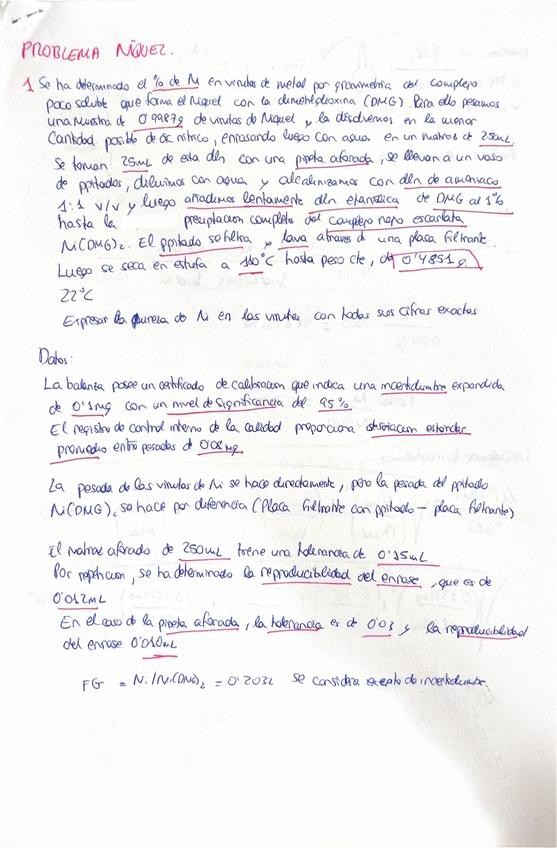 PROBLEMA NÍQUEL.
1 Se ha determinado el % de Ni en virutas de metal por gravimetria del complejo
poco soluble que forma el Niquel con la dimetilglioxina (DMG) Para ello pesamos
una muestra de 0'9987g de virutas de Niquel y la disolvemos en la menor
Cantidad posible de ác nítrico, enrasando luego con agua en un matraz de 250mL
Se toman 25mL de esta dln con una pipeta aforada, se llevan a un vaso
de pptados, diluimos con agua y alcalinizamos con dln de amoniaco
1:1 v/v y luego añadimos lentamente dln etanolica de DMG al 1%
hasta la precipitacion completa del complejo rojo escarlata
Ni(DMG)2. El pptado se filtra y lava a traves de una placa filtrante.
Luego se seca en estufa a 110°C hasta peso cte, de 0'4851 g
22°C
Expresar la pureza de Ni en las virutas con todas sus cifras exactas
Datos:
La balanza posee un certificado de calibracion que indica una incertidumbre expandida
de 0'1mg con un nivel de significancia del 95%
El registro de control interno de la calidad proporciona desviacion estandar
promedio entre pesadas de 0'08mg
La pesada de las virutas de Ni se hace directamente, pero la pesada del pptado
Ni(DMG)2 se hace por diferencia (Placa filtrante con pptado - placa filtrante)
El matraz aforado de 250mL tiene una tolerancia de 0'15mL
Por repeticion, se ha determinado la reproducibilidad del enrase, que es de
0'012mL
En el caso de la pipeta aforada, la tolerancia es de 0'03 y la reproducibilidad
del enrase 0'010mL
FG = Ni/Ni(DMG)2 = 0'2032 se considera exento de incertidumbre.